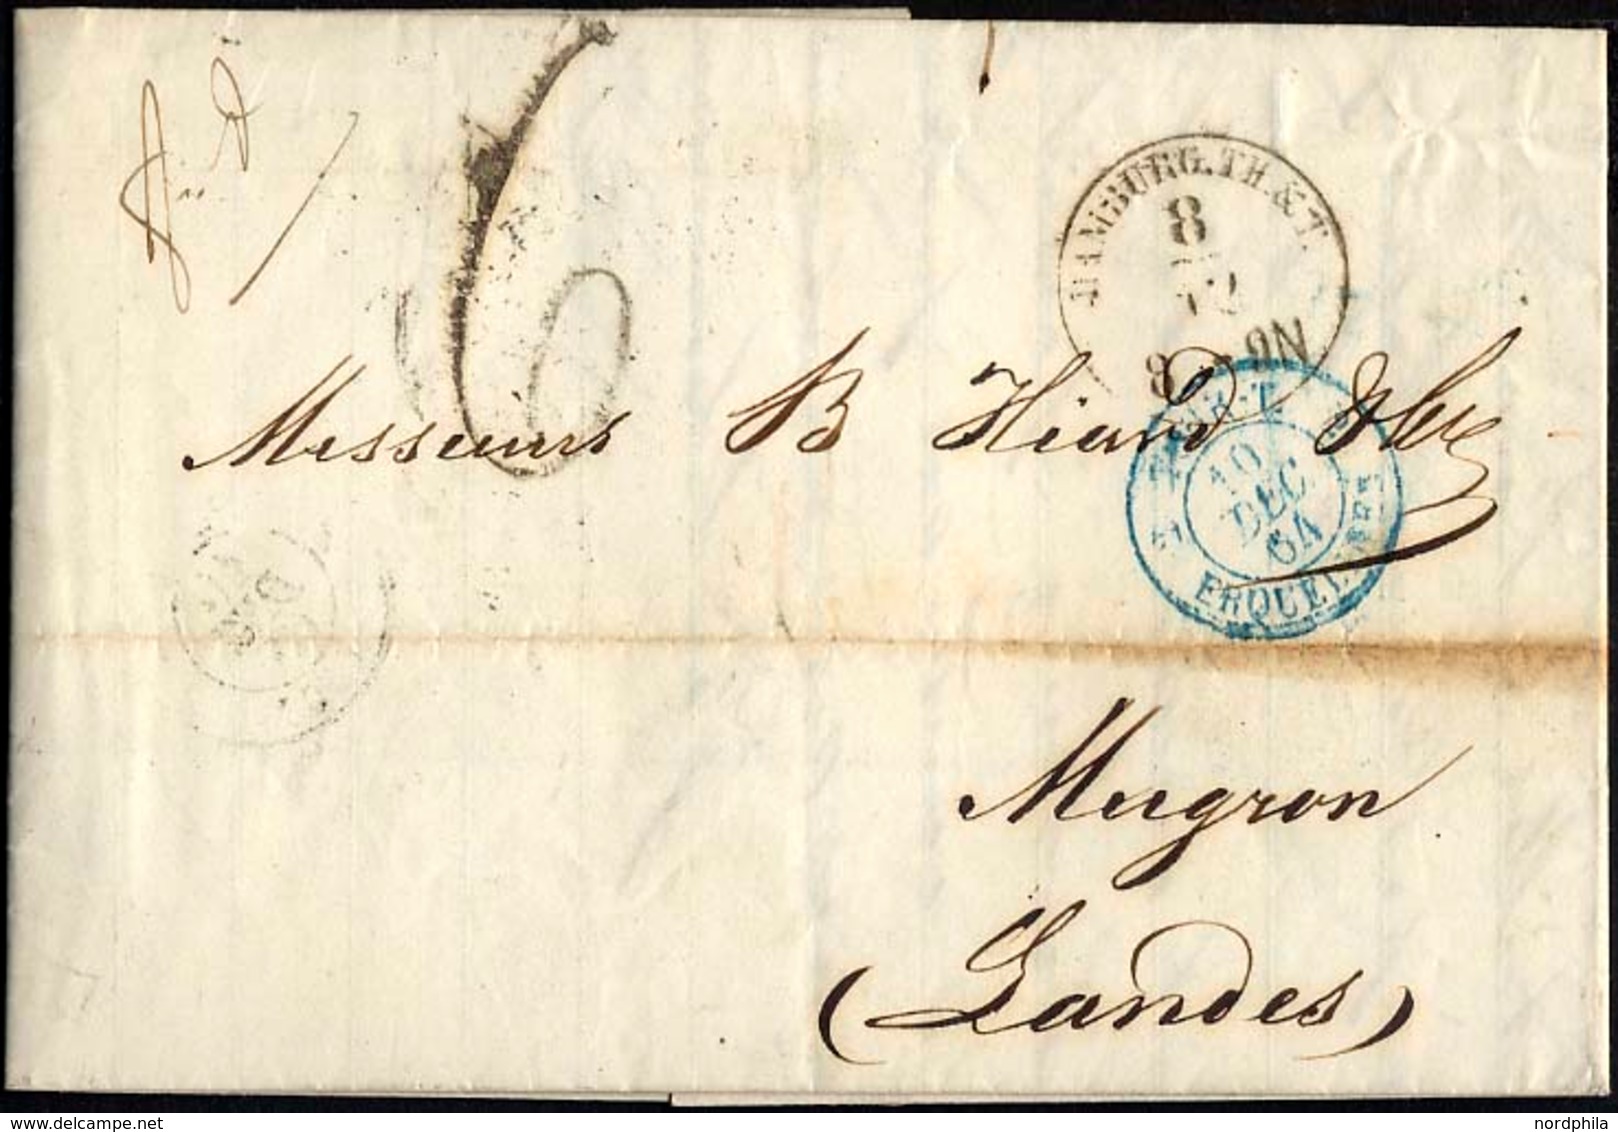 6
HAMBURG. TH. & T.
8
12
8 - 9N
Messieurs B Hiard
10
DEC
64
ERQUELINES
Mugron
(Landes)
nordphila